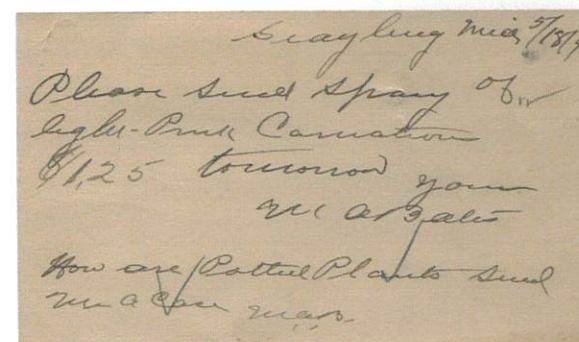 Grayling Mich 5/18/
Please send spray of
light-Pink Carnations
$1.25 tomorrow yours
M A Bates
How are Potted Plants send
me a few
M.A.B.